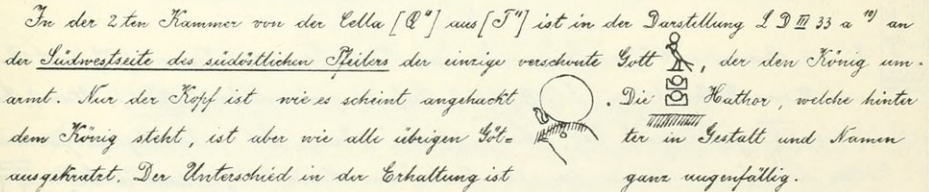 In der 2ten Kammer von der Cella [Q"] aus [T"] ist in der Darstellung L D III 33 a 10) an
der Südwestseite des südöstlichen Pfeilers der einzige verschonte Gott , der den König um-
armt. Nur der Kopf ist wie es scheint angehackt . Die Hathor, welche hinter
dem König steht, ist aber wie alle übrigen Göt= ter in Gestalt und Namen
ausgekratzt. Der Unterschied in der Erhaltung ist ganz augenfällig.